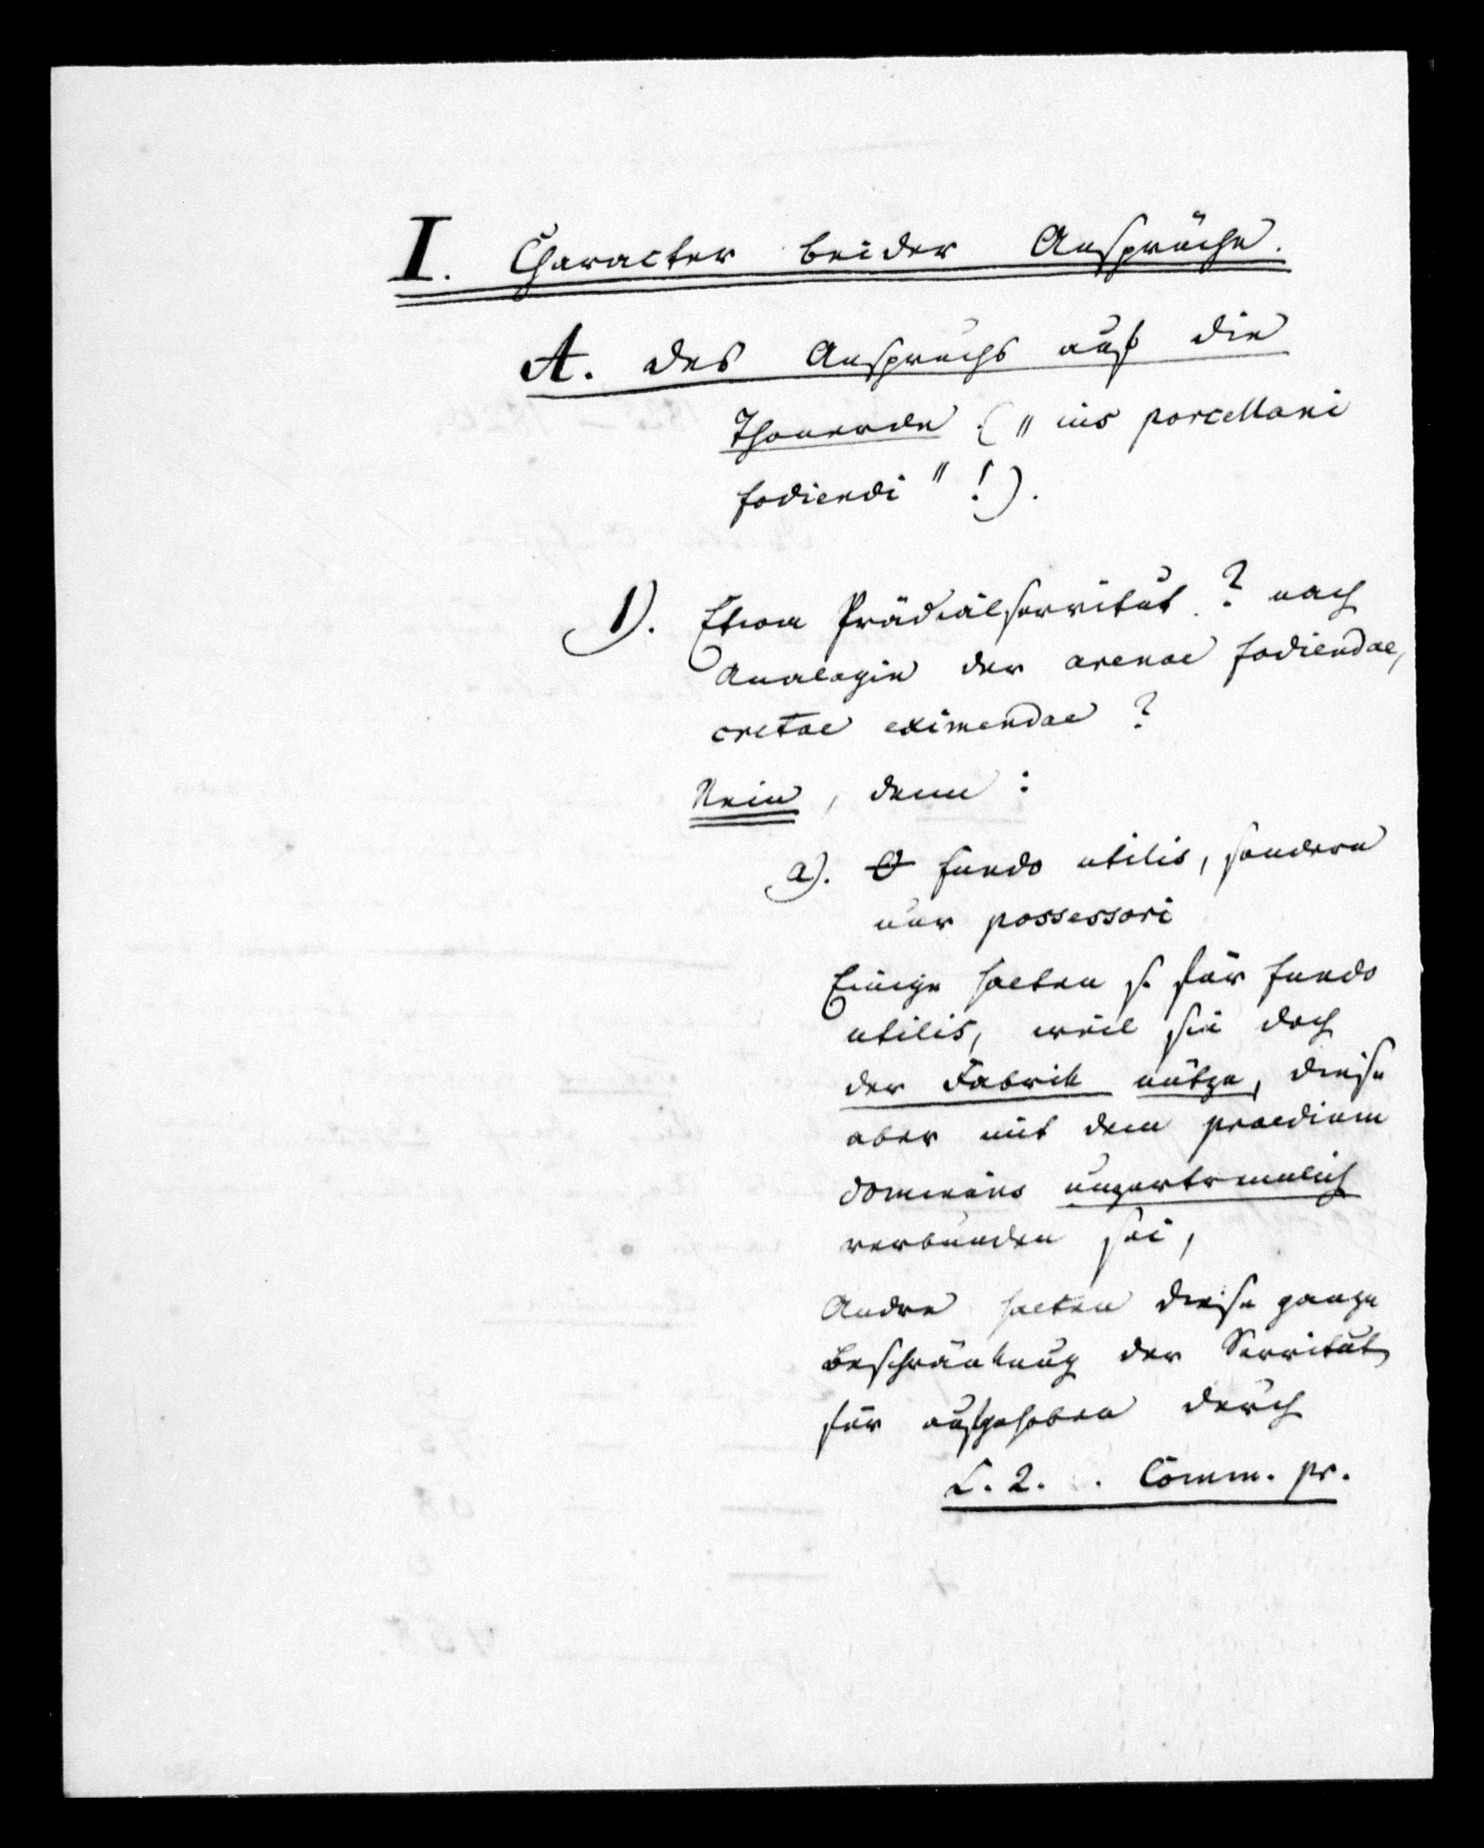 I. Character beider Ansprüche.
A. des Anspruchs auf die
Thonerde („ius porcellani
fodiendi" !).
1). Etwa Prädialservitut? nach
Analogie der arenae fodiendae,
cretae eximendae ?
Nein, denn :
a). fundo utilis, sondern
nur possessori
Einige halten s. für fundo
utilis, weil sie doch
der Fabrik nütze, diese
aber mit dem praedium
dominans unzertrennlich
verbunden sei,
Andre halten diese ganze
Beschränkung der Servitut
für aufgehoben durch
L. 2. . Comm. pr.